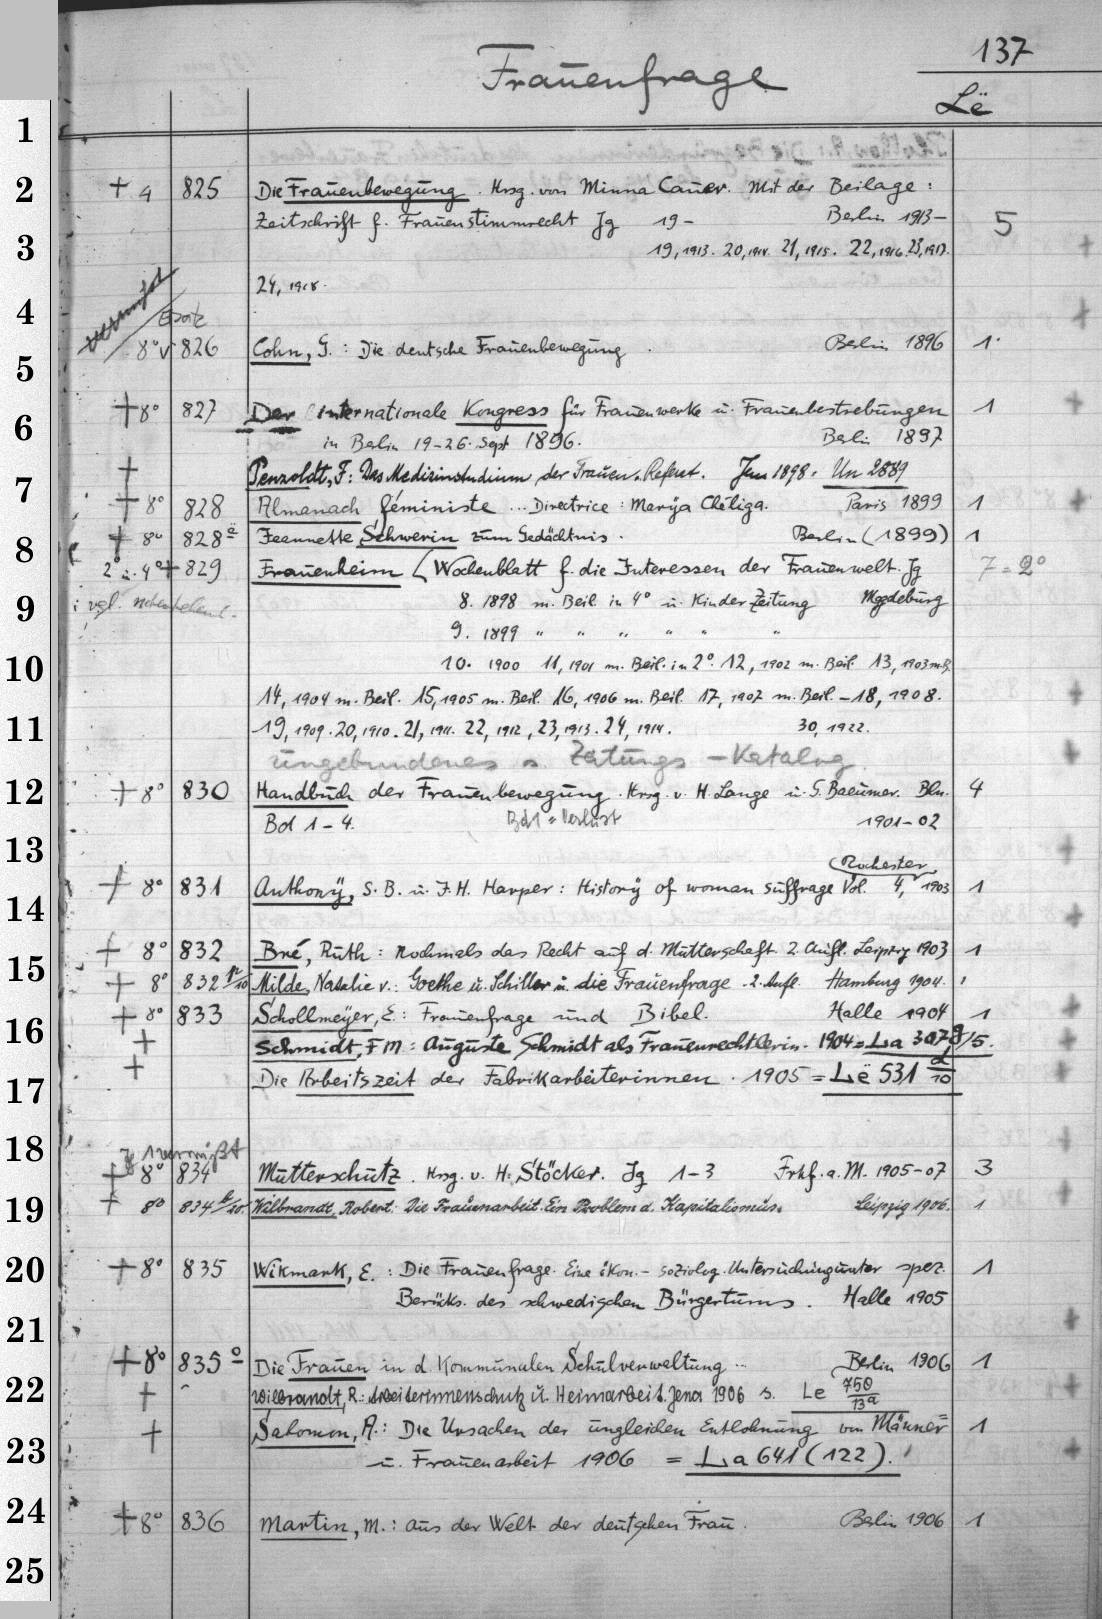 137
Frauenfrage
Lë
1
2 + 4 825 Die Frauenbewegung. Hrsg. von Minna Cauer. Mit der Beilage:
Zeitschrift f. Frauenstimmrecht Jg 19- Berlin 1913- 5
3 19, 1913. 20, 1914. 21, 1915. 22, 1916. 23, 1917.
24, 1918.
vermisst
4 Ersatz
5 8° v 826 Cohn, G.: Die deutsche Frauenbewegung. Berlin 1896 1
6 + 8° 827 Der internationale Kongress für Frauenwerke u. Frauenbestrebungen 1
in Berlin 19-26. Sept 1896. Berlin 1897
7 + Penzoldt, F: Das Medizinstudium der Frauen. Referat. Jena 1898. Un 2889
+ 8° 828 Almanach féministe ... Directrice: Marya Chéliga. Paris 1899 1
8 + 8° 828ᵉ Jeannette Schwerin zum Gedächtnis. Berlin (1899) 1
2° u. 4° + 829 Frauenheim [Wochenblatt f. die Interessen der Frauenwelt. Jg 7=2°
9 vgl. nebenstehend. 8. 1898 m. Beil in 4° u. Kinder Zeitung Magdeburg
9. 1899 " " " " " "
10 10. 1900 11, 1901 m. Beil. in 2°. 12, 1902 m. Beil. 13, 1903 m. B.
14, 1904 m. Beil. 15, 1905 m. Beil. 16, 1906 m. Beil. 17, 1907 m. Beil. - 18, 1908.
11 19, 1909. 20, 1910. 21, 1911. 22, 1912, 23, 1913. 24, 1914. 30, 1922.
ungebundenes s. Zeitungs-Katalog.
12 + 8° 830 Handbuch der Frauenbewegung. Hrsg. v. H. Lange u. G. Baeumer. Bln. 4
Bd 1-4. Bd 1 = Verlust 1901-02
13
Rochester
14 + 8° 831 Anthony, S. B. u. J. H. Harper: History of woman suffrage Vol. 4, 1903 1
15 + 8° 832 Bré, Ruth: Nochmals das Recht auf d. Mutterschaft. 2. Aufl. Leipzig 1903 1
+ 8° 832 Milde, Natalie v.: Goethe u. Schiller u. die Frauenfrage. 2. Aufl. Hamburg 1904. 1
16 + 8° 833 Schollmeyer, E: Frauenfrage und Bibel. Halle 1904 1
+ Schmidt, F M: Auguste Schmidt als Frauenrechtlerin. 1904 = La 307
17 + Die Arbeitszeit der Fabrikarbeiterinnen. 1905 = Lë 531 d/10
18 1 vermißt
+ 8° 834 Mutterschutz. Hrsg. v. H. Stöcker. Jg 1-3 Frkf. a. M. 1905-07 3
19 + 8° 834 Wilbrandt, Robert: Die Frauenarbeit. Ein Problem d. Kapitalismus. Leipzig 1906. 1
20 + 8° 835 Wikmark, E.: Die Frauenfrage. Eine ökon.-soziolog. Untersuchung unter spez. 1
Berücks. des schwedischen Bürgertums. Halle 1905
21
+ 8° 835° Die Frauen in d. Kommunalen Schulverwaltung ... Berlin 1906 1
22 + Wilbrandt, R.: Arbeiterinnenschutz u. Heimarbeit. Jena 1906 s. Le 750/13a
+ Salomon, A.: Die Ursachen der ungleichen Entlohnung von Männer= 1
23 u. Frauenarbeit 1906 = La 641 (122).
24 + 8° 836 Martin, M.: Aus der Welt der deutschen Frau. Berlin 1906 1
25